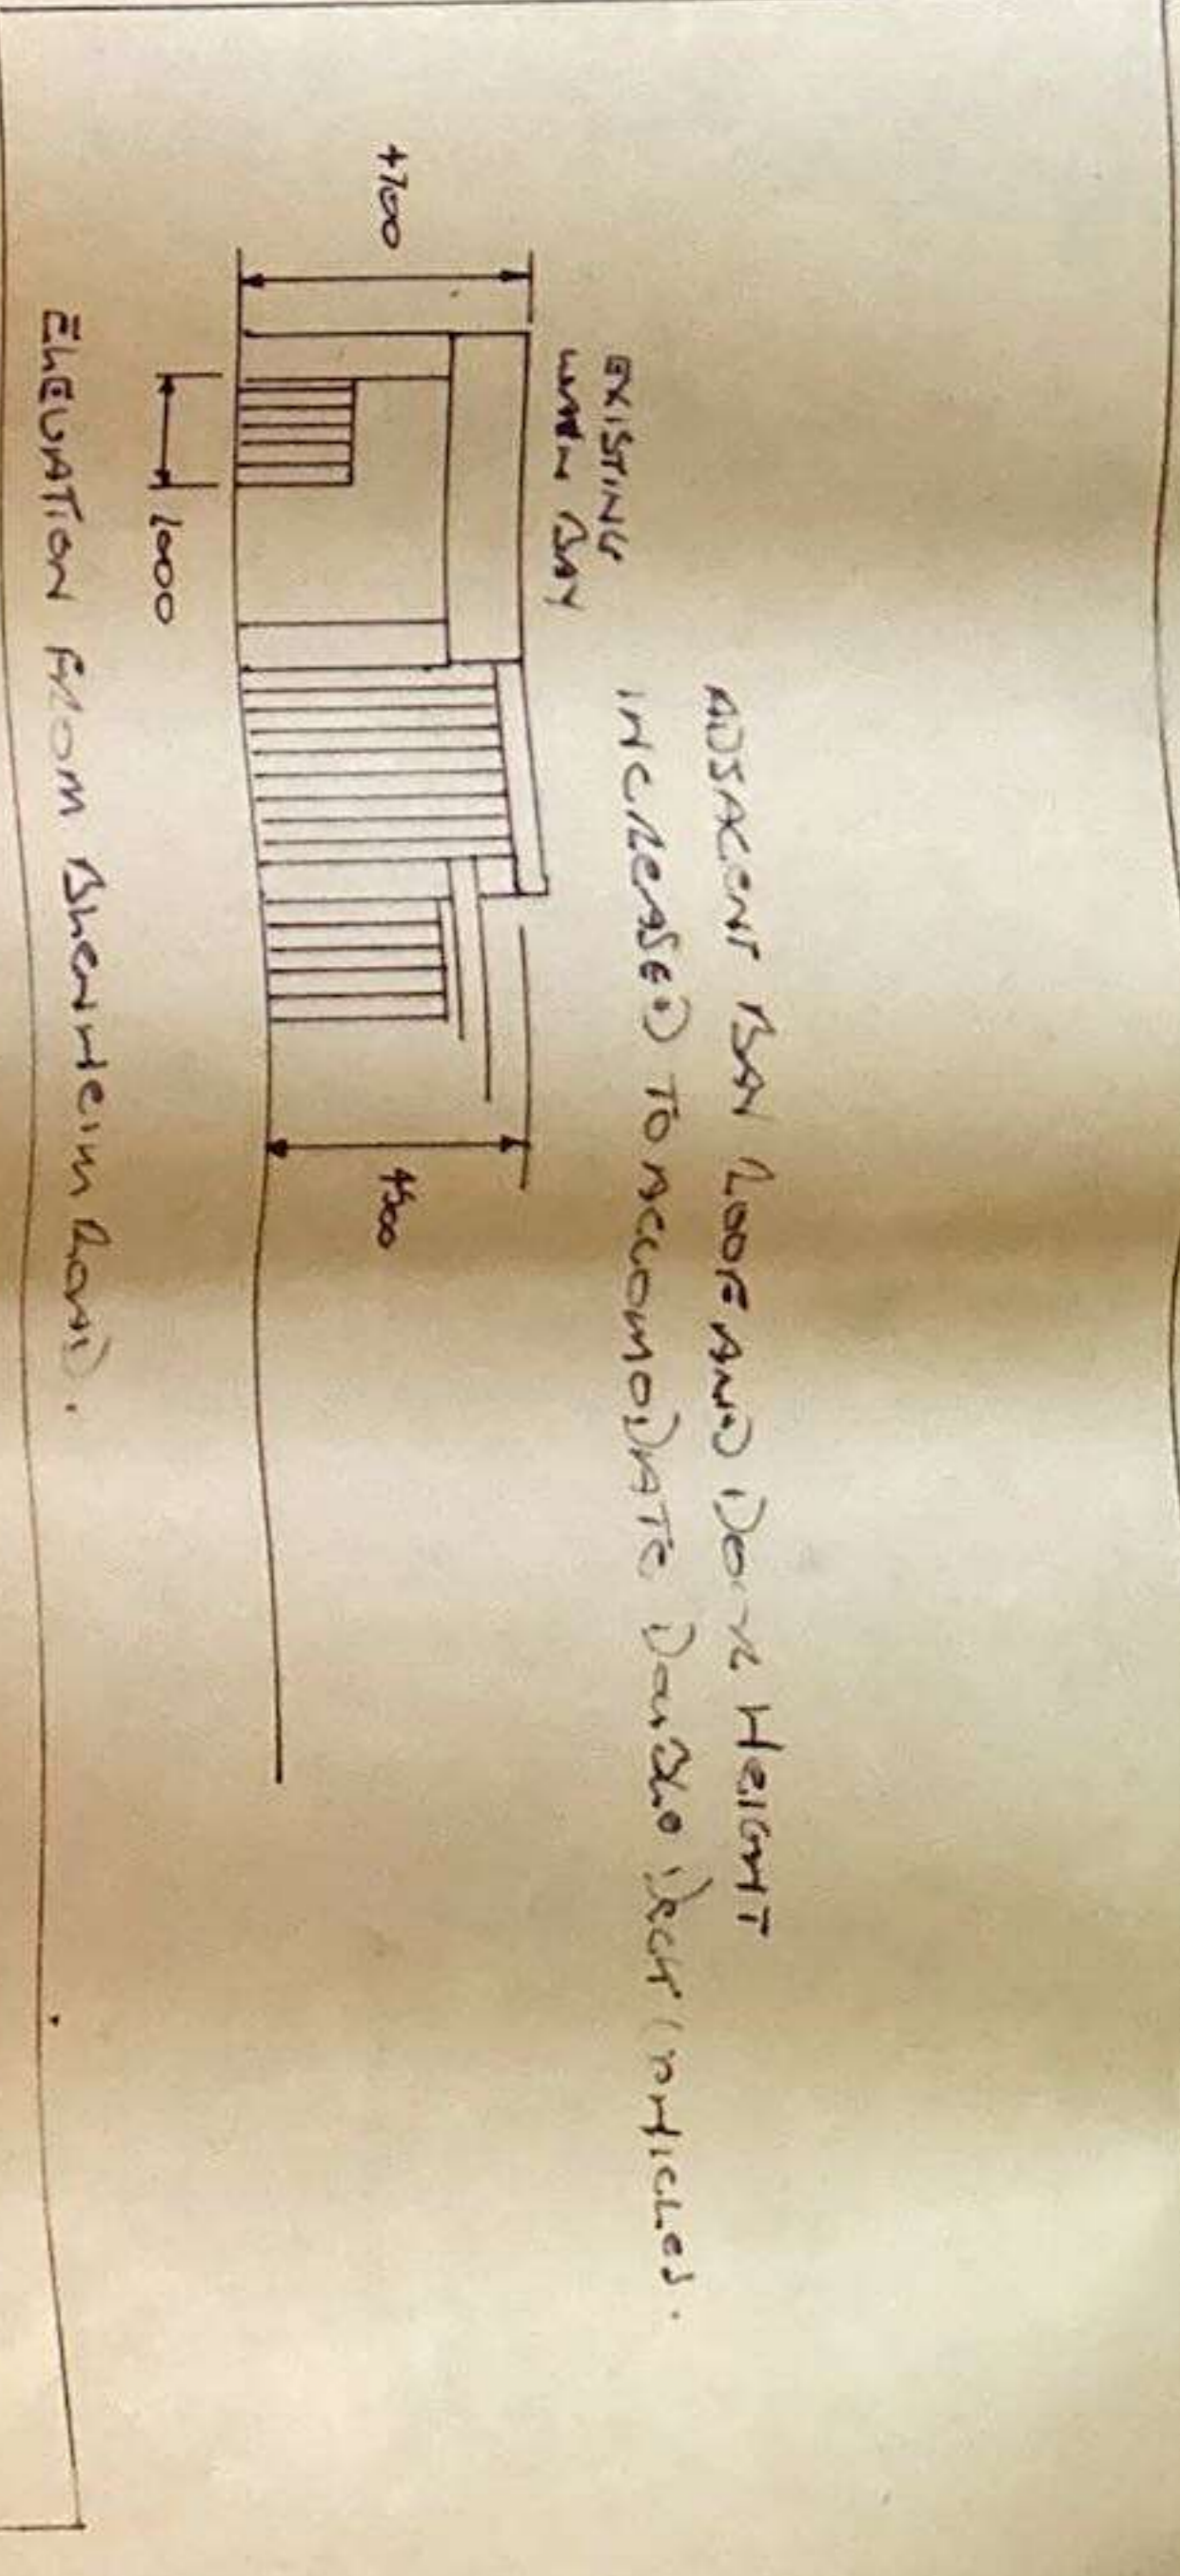 ADJACENT BAY ROOF AND DOOR HEIGHT
INCREASED TO ACCOMODATE DOUBLE DECK VEHICLES.
EXISTING
WASH BAY
4700
4500
1000
ELEVATION FROM BLENHEIM ROAD.